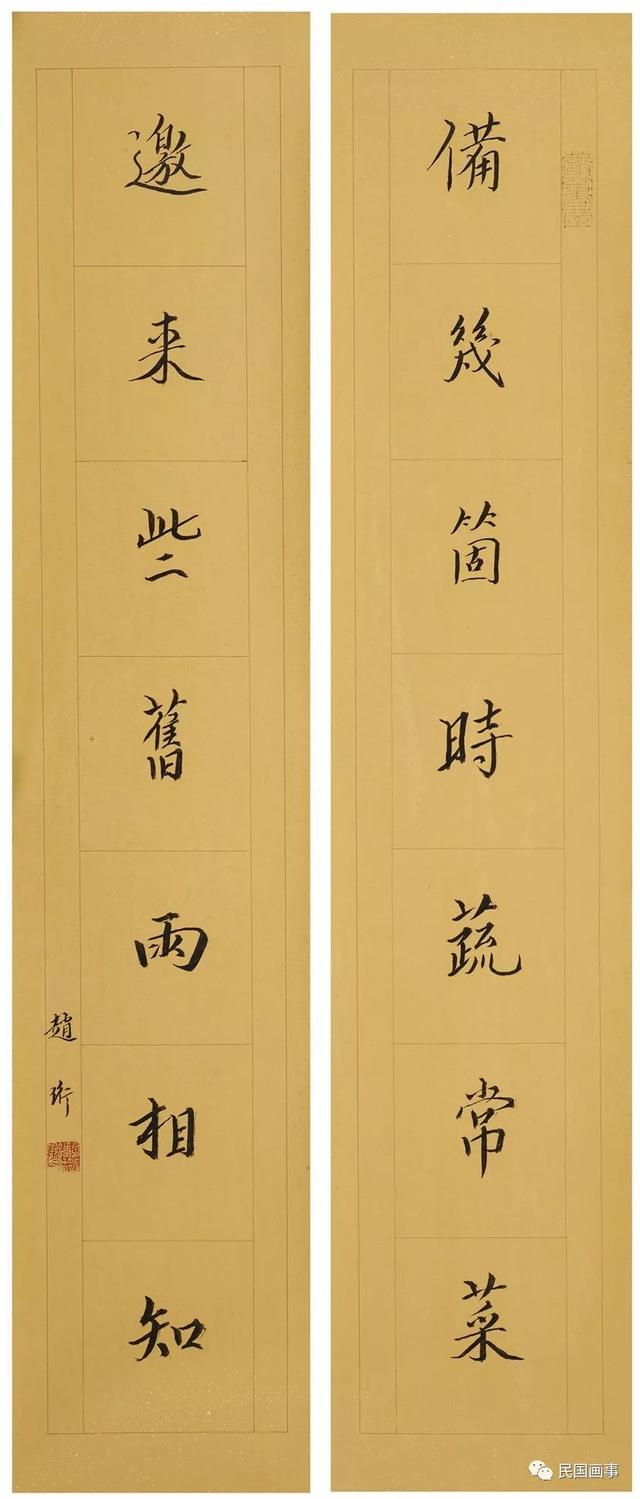 備幾箇時蔬常菜
邀来些舊雨相知
趙珩
民国画事